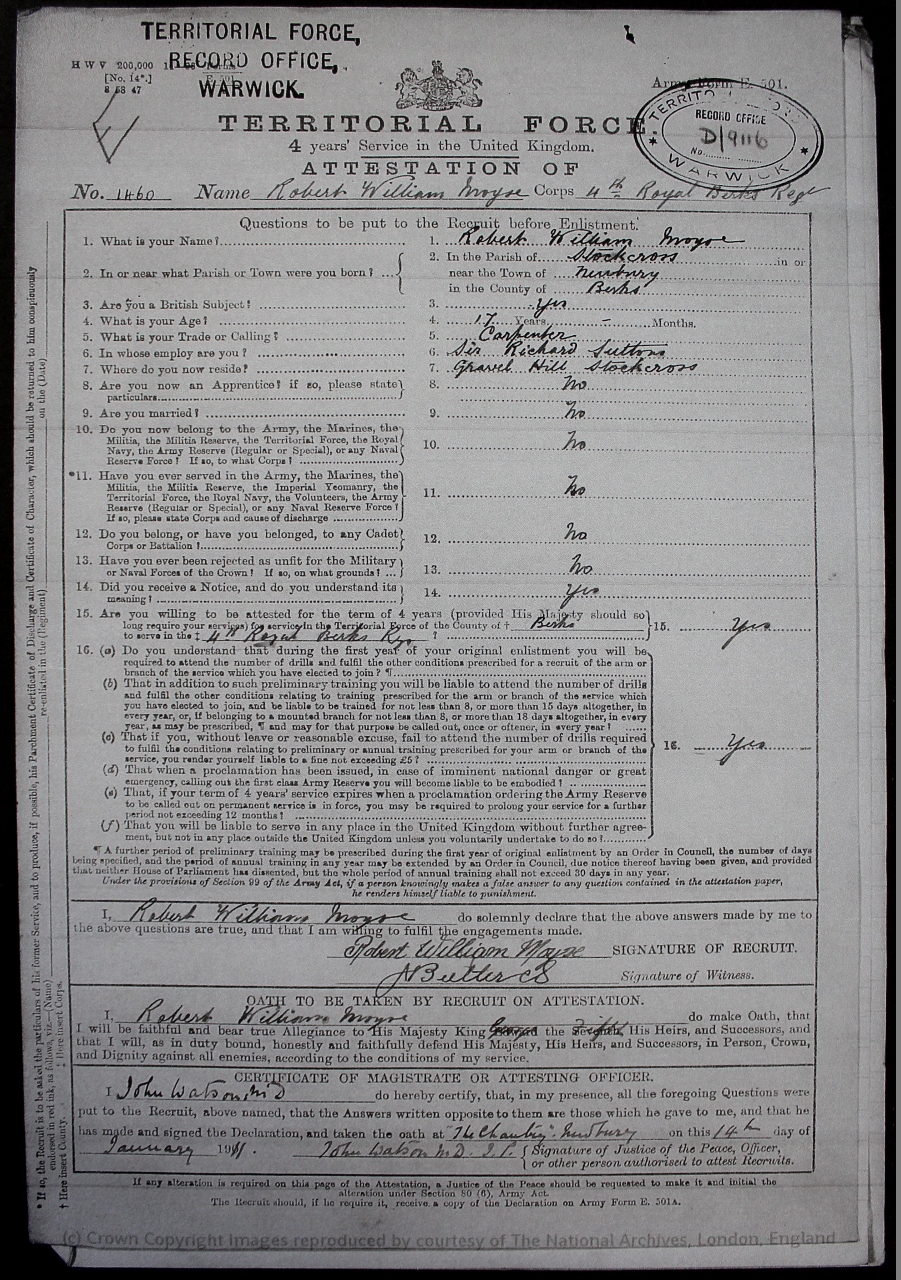 TERRITORIAL FORCE,
RECORD OFFICE,
WARWICK.
H W V 200,000
[No. 14*.]
8 58 47
Army Form E. 501.
TERRITORIAL FORCE
RECORD OFFICE
D/9116
No.
WARWICK
TERRITORIAL FORCE
4 years' Service in the United Kingdom.
ATTESTATION OF
No. 1460 Name Robert William Moyse Corps 4th Royal Berks Regt
Questions to be put to the Recruit before Enlistment.
1. What is your Name? 1. Robert William Moyse
2. In or near what Parish or Town were you born? ... { 2. In the Parish of Stockcross in or
near the Town of Newbury
in the County of Berks
3. Are you a British Subject? 3. Yes
4. What is your Age? 4. 17 Years - Months.
5. What is your Trade or Calling? 5. Carpenter
6. In whose employ are you? 6. Sir Richard Suttons
7. Where do you now reside? 7. Gravel Hill Stockcross
8. Are you now an Apprentice? if so, please state } 8. No
particulars
9. Are you married? 9. No
10. Do you now belong to the Army, the Marines, the
Militia, the Militia Reserve, the Territorial Force, the Royal
Navy, the Army Reserve (Regular or Special), or any Naval
Reserve Force? If so, to what Corps? } 10. No
*11. Have you ever served in the Army, the Marines, the
Militia, the Militia Reserve, the Imperial Yeomanry, the
Territorial Force, the Royal Navy, the Volunteers, the Army
Reserve (Regular or Special), or any Naval Reserve Force?
If so, please state Corps and cause of discharge } 11. No
12. Do you belong, or have you belonged, to any Cadet
Corps or Battalion? } 12. No
13. Have you ever been rejected as unfit for the Military
or Naval Forces of the Crown? If so, on what grounds? ... } 13. No
14. Did you receive a Notice, and do you understand its
meaning? } 14. Yes
15. Are you willing to be attested for the term of 4 years (provided His Majesty should so
long require your services) for service in the Territorial Force of the County of † Berks
to serve in the ‡ 4th Royal Berks Reg ? } 15. Yes
16. (a) Do you understand that during the first year of your original enlistment you will be
required to attend the number of drills and fulfil the other conditions prescribed for a recruit of the arm or
branch of the service which you have elected to join? ¶
(b) That in addition to such preliminary training you will be liable to attend the number of drills
and fulfil the other conditions relating to training prescribed for the arm or branch of the service which
you have elected to join, and be liable to be trained for not less than 8, or more than 15 days altogether, in
every year, or, if belonging to a mounted branch for not less than 8, or more than 18 days altogether, in every
year, as may be prescribed, ¶ and may for that purpose be called out, once or oftener, in every year? ......
(c) That if you, without leave or reasonable excuse, fail to attend the number of drills required
to fulfil the conditions relating to preliminary or annual training prescribed for your arm or branch of the
service, you render yourself liable to a fine not exceeding £5? } 16. Yes
(d) That when a proclamation has been issued, in case of imminent national danger or great
emergency, calling out the first class Army Reserve you will become liable to be embodied?
(e) That, if your term of 4 years' service expires when a proclamation ordering the Army Reserve
to be called out on permanent service is in force, you may be required to prolong your service for a further
period not exceeding 12 months?
(f) That you will be liable to serve in any place in the United Kingdom without further agree-
ment, but not in any place outside the United Kingdom unless you voluntarily undertake to do so?
¶ A further period of preliminary training may be prescribed during the first year of original enlistment by an Order in Council, the number of days
being specified, and the period of annual training in any year may be extended by an Order in Council, due notice thereof having been given, and provided
that neither House of Parliament has dissented, but the whole period of annual training shall not exceed 30 days in any year.
Under the provisions of Section 99 of the Army Act, if a person knowingly makes a false answer to any question contained in the attestation paper,
he renders himself liable to punishment.
I, Robert William Moyse do solemnly declare that the above answers made by me to
the above questions are true, and that I am willing to fulfil the engagements made.
Robert William Moyse SIGNATURE OF RECRUIT.
Butler Signature of Witness.
OATH TO BE TAKEN BY RECRUIT ON ATTESTATION.
I, Robert William Moyse do make Oath, that
I will be faithful and bear true Allegiance to His Majesty King George the Fifth, His Heirs, and Successors, and
that I will, as in duty bound, honestly and faithfully defend His Majesty, His Heirs, and Successors, in Person, Crown,
and Dignity against all enemies, according to the conditions of my service.
CERTIFICATE OF MAGISTRATE OR ATTESTING OFFICER.
I John Watson, M D do hereby certify, that, in my presence, all the foregoing Questions were
put to the Recruit, above named, that the Answers written opposite to them are those which he gave to me, and that he
has made and signed the Declaration, and taken the oath at "The Chantry" Newbury on this 14th day of
January 1911. John Watson M.D. J.P. { Signature of Justice of the Peace, Officer,
or other person authorised to attest Recruits.
If any alteration is required on this page of the Attestation, a Justice of the Peace should be requested to make it and initial the
alteration under Section 80 (6), Army Act.
The Recruit should, if he require it, receive a copy of the Declaration on Army Form E. 501A.
* If so, the Recruit is to be asked the particulars of his former Service, and to produce, if possible, his Parchment Certificate of Discharge and Certificate of Character, which should be returned to him conspicuously
endorsed in red ink, as follows, viz.—(Name) re-enlisted in the (Regiment) on the (Date)
† Here insert County. ‡ Here insert Corps.
(c) Crown Copyright Images reproduced by courtesy of The National Archives, London, England